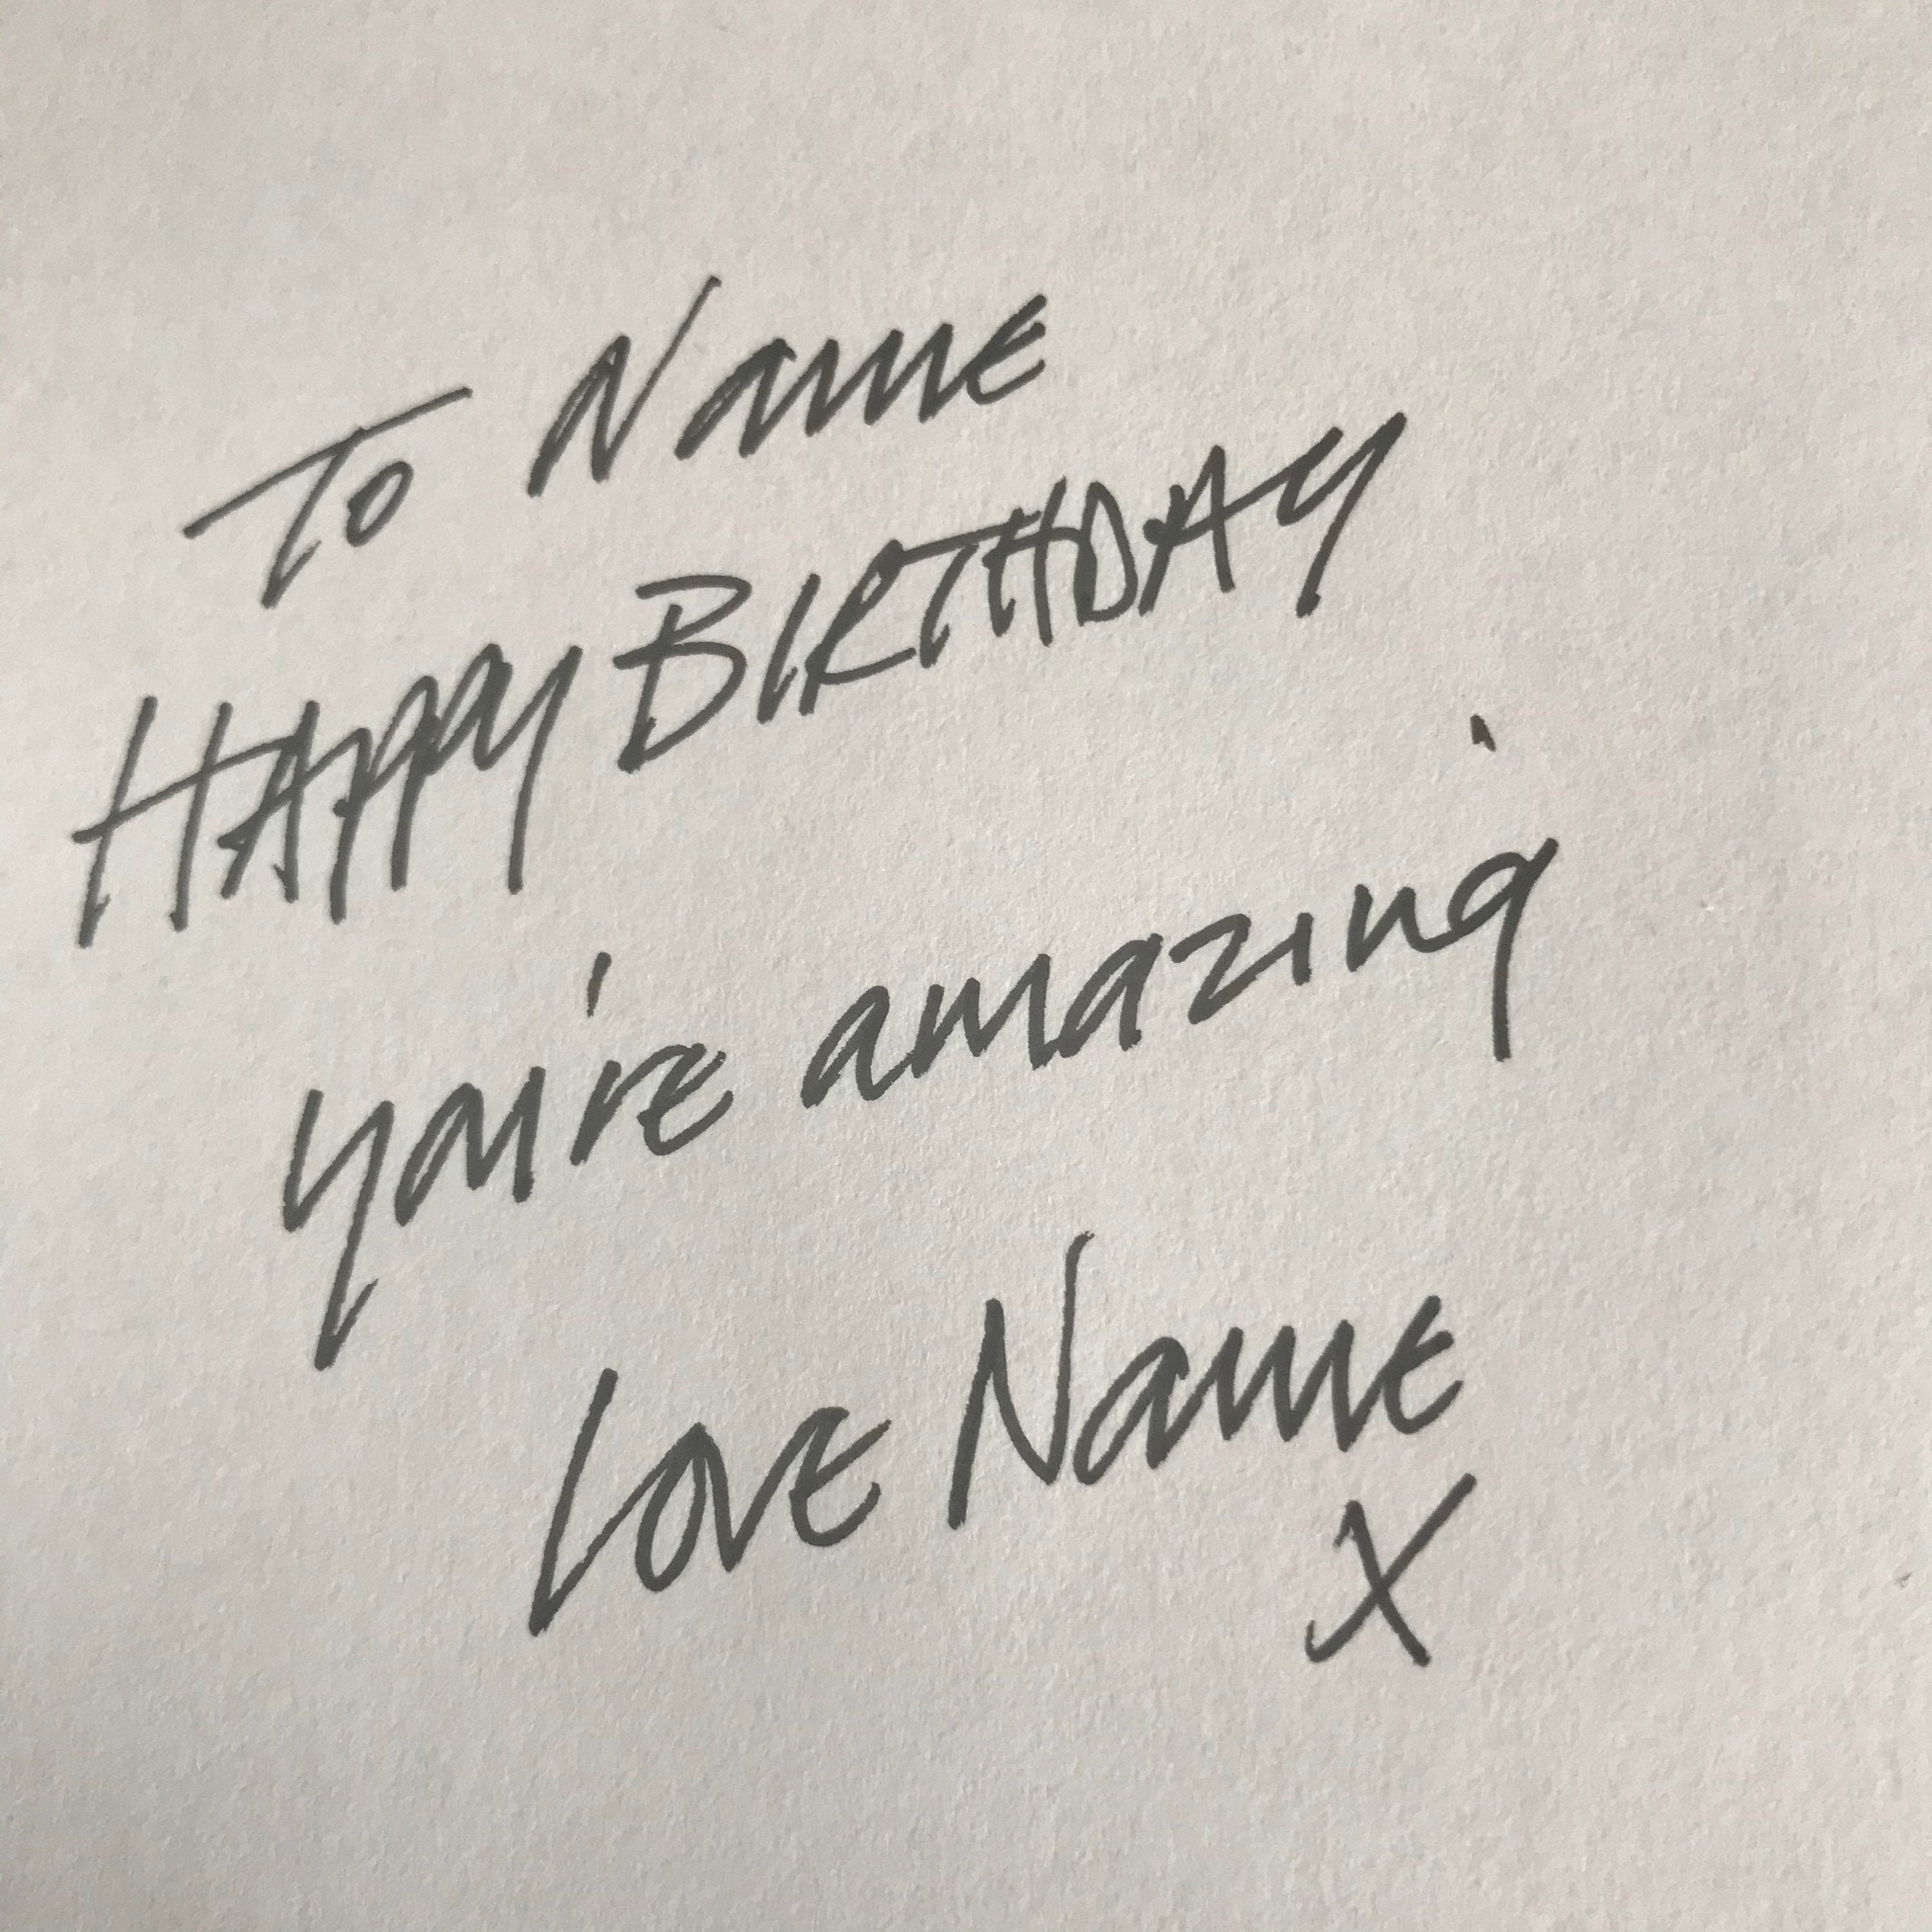 To Name
HAppy BIRTHDAY
you're amazing
Love Name
X